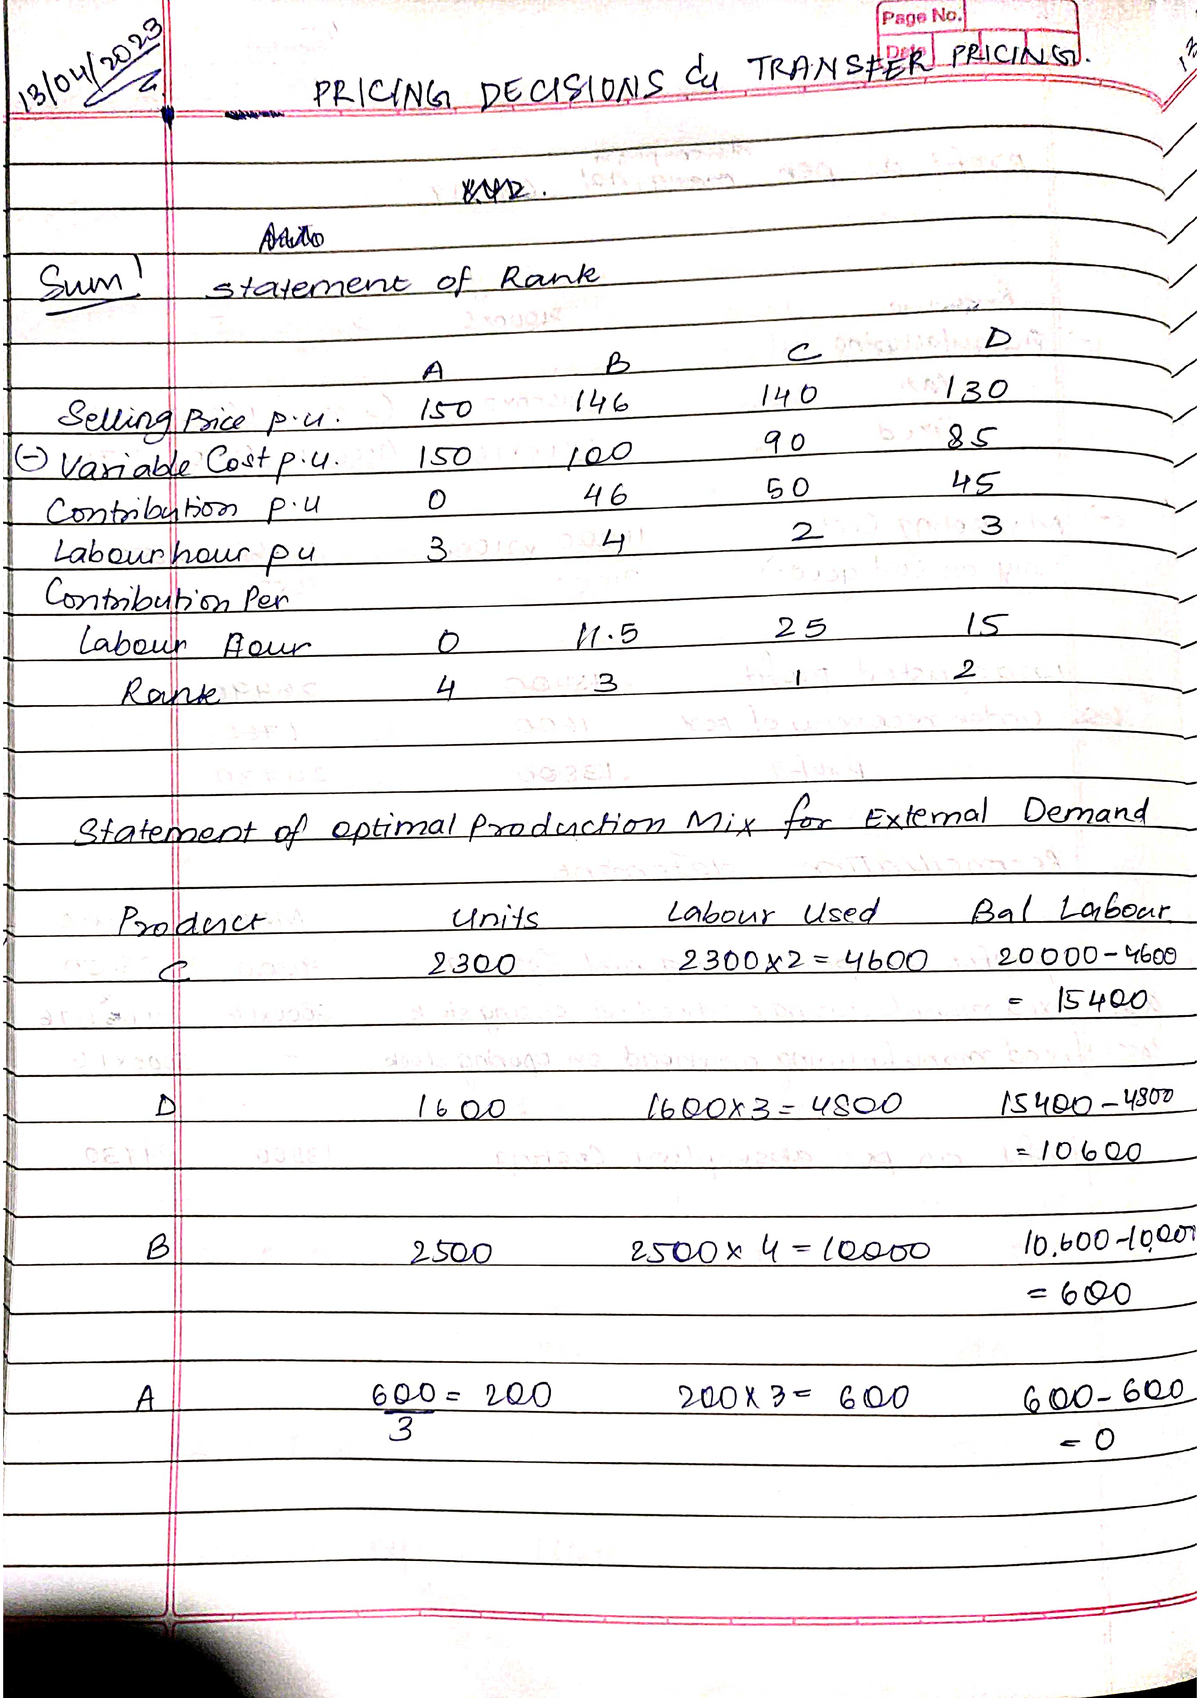 Page No.
Date
13/04/2023
PRICING DECISIONS & TRANSFER PRICING.
Sum 1 Statement of Rank
A B C D
Selling Price p.u. 150 146 140 130
(-) Variable Cost p.u. 150 100 90 85
Contribution p.u 0 46 50 45
Labour hour pu 3 4 2 3
Contribution Per
Labour Hour 0 11.5 25 15
Rank 4 3 1 2
Statement of optimal Production Mix for External Demand
Product Units Labour Used Bal Labour
C 2300 2300x2 = 4600 20000-4600
= 15400
D 1600 1600x3 = 4800 15400-4800
= 10600
B 2500 2500x4 = 10000 10,600-10,000
= 600
A 600/3 = 200 200x3 = 600 600-600
= 0